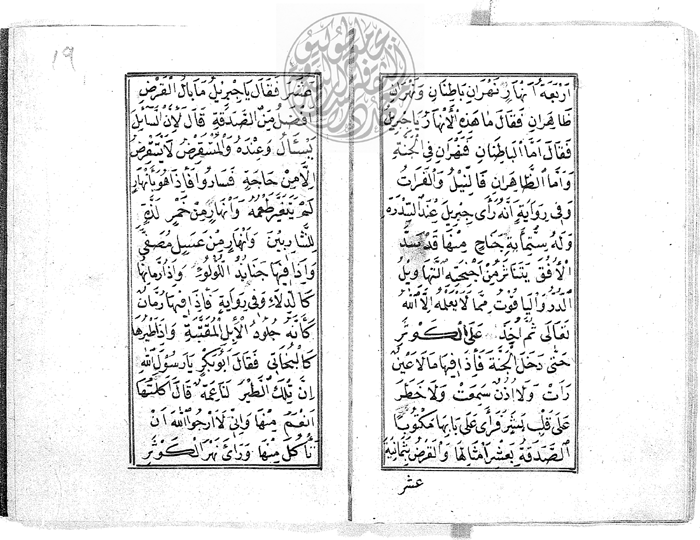 اربعة انهار نهران باطنان ونهران
ظاهران فقال ما هذه الانهار يا جبريل
فقال اما الباطنان فنهران في الجنة
واما الظاهران فالنيل والفرات
وفي رواية انه رأى جبريل عند السدره
وله ستماية جناح منها قد سد
الافق يتناثر من اجنحته التهاويل
الدر والياقوت مما لا يعلمه الا الله
تعالى ثم اخذ على الكوثر
حتى دخل الجنة فاذا فيها ما لا عين
رات ولا اذن سمعت ولا خطر
على قلب بشر فرأى على بابها مكتوبا
الصدقة بعشر امثالها والقرض بثمانية
عشر
19
عشر فقال يا جبريل ما بال القرض
افضل من الصدقة قال لان السايل
يسئال وعنده والمستقرض لا يستقرض
الا من حاجة فساروا فاذا هو بانهار
لم يتغير طعمه وانهار من خمر لذة
للشاربين وانهار من عسل مصفى
واذا فيها جنابذ اللؤلؤ واذا رمانها
كالدلاء وفي رواية فاذا فيها رمان
كأنه جلود الابل المقتبة واذا طيرها
كالبخاتي فقال ابو بكر يا رسول الله
ان تلك الطير لناعمة قال اكلتها
انعم منها واني لارجو الله ان
تأكل منها ورأى نهر الكوثر